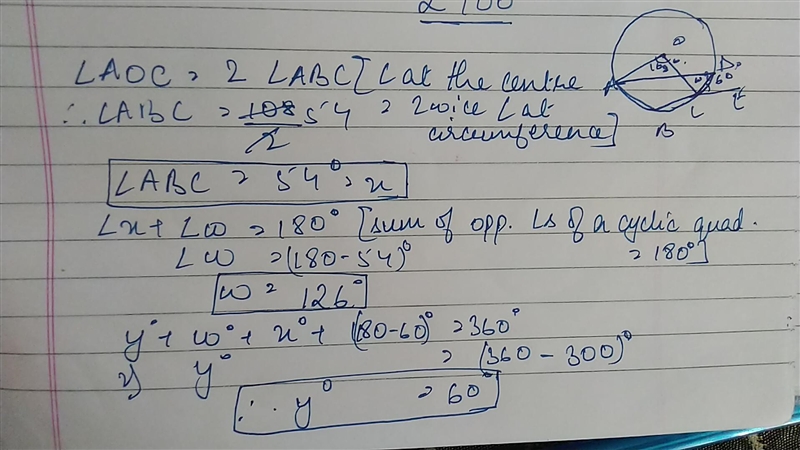 2 100
∠AOC = 2 ∠ABC [∠ at the centre
∴ ∠ABC = 108/2 54 = 2wice ∠ at
circumference]
∠ABC = 54° = x
∠x + ∠w = 180° [sum of opp. ∠s of a cyclic quad.
∠w = (180-54)° = 180°]
w = 126°
y° + w° + x° + (180-60)° = 360°
y° = (360 - 300)°
∴ y° = 60°
O
A
B
C
D
E
108
60